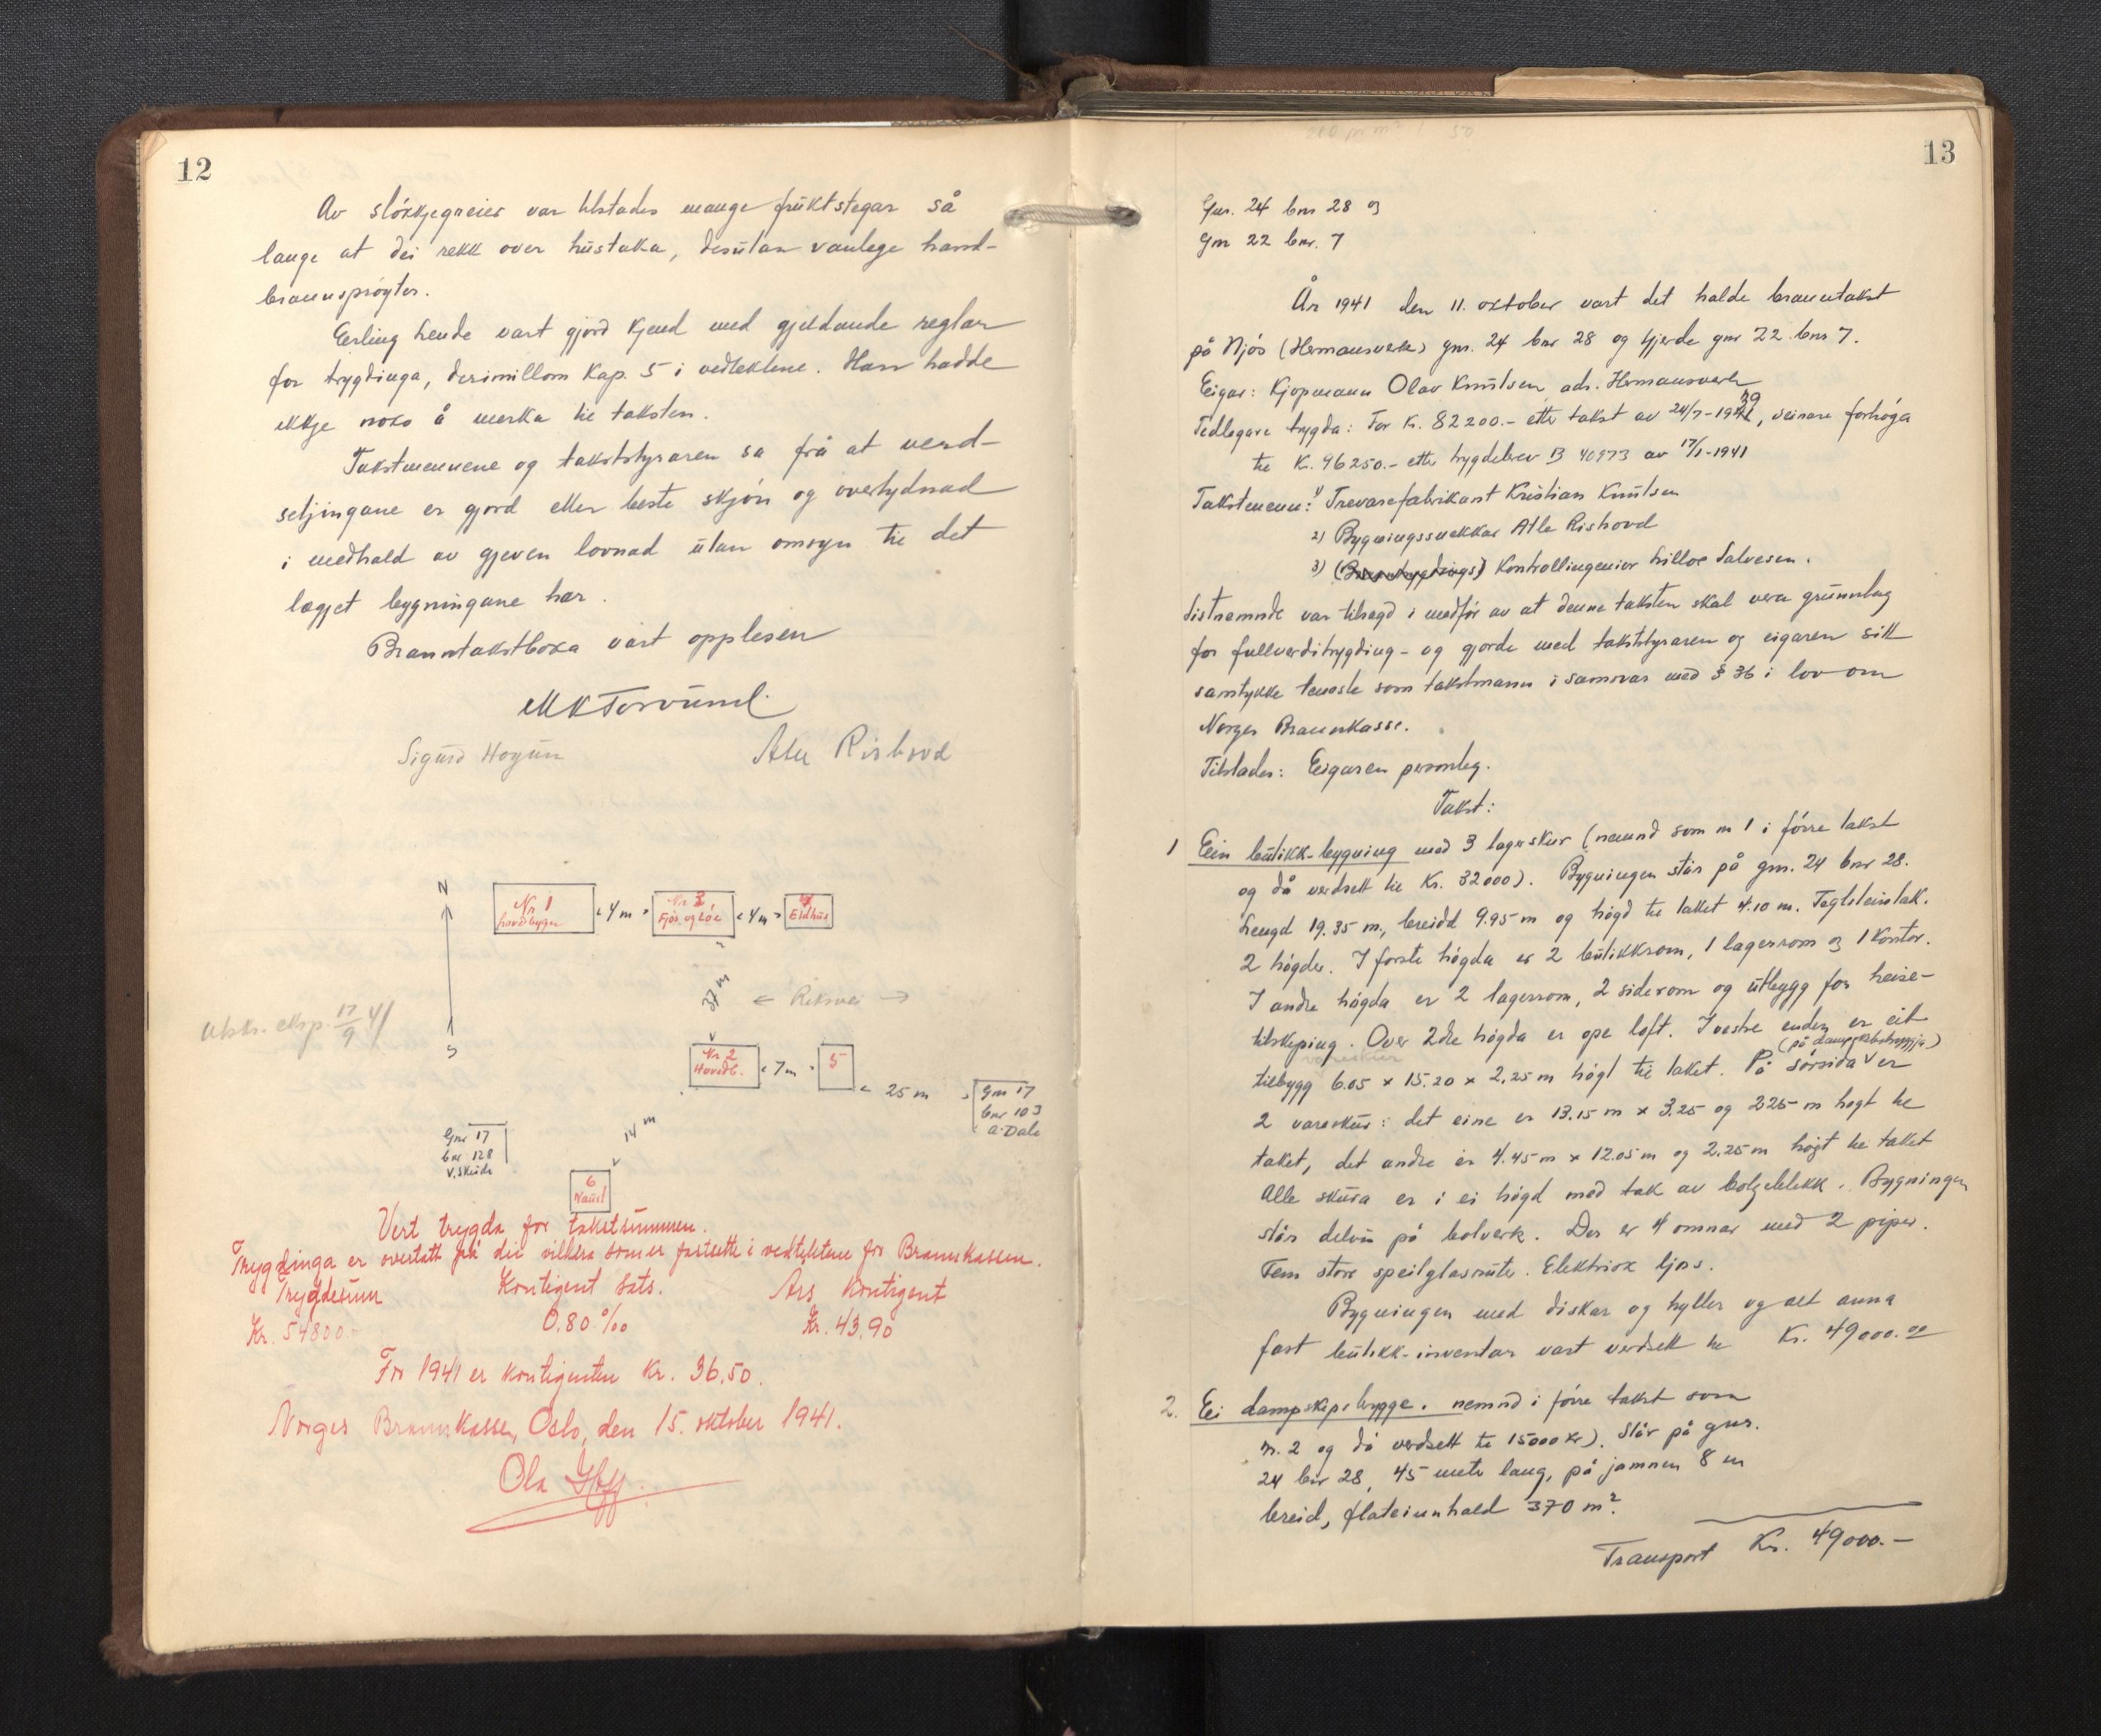 12
Av sløkkjegreier var tilstades mange fruktstegar så
lange at dei rekk over hustaka, desutan vanlege hand-
brannsprøytor.
Erling Hende vart gjord kjend med gjeldande reglar
for trygdinga, derimillom Kap. 5 i vedtektene. Han hadde
ikkje noko å merka til taksten.
Takstmennene og takststyraren sa frå at verd-
setjingane er gjord etter beste skjøn og overtydnad
i medhald av gjeven lovnad utan omsyn til det
lægjet bygningane har.
Branntakstboka vart opplesen
Sigurd Hogun
Atle Rishovd
N
S
Nr 1
hovdbygn
4 m
Nr 3
Fjøs og løe
4 m
4
Eldhus
37 m
← Riksvei →
Utskr. eksp. 17/9 41
Nr 2
Hovedb.
7 m
5
25 m
Gnr 17
bnr 103
A. Dale
Gnr 17
bnr 128
V. Skeide
14 m
6
Naust
Vert trygda for takstsummen.
Trygdinga er overtatt på dei vilkåra som er fastsette i vedtektene for Brannkassen.
Trygdesum Kontigent sats. Års kontigent
Kr. 54800.- 0.80 ‰ Kr. 43.90
For 1941 er kontigenten kr. 36.50.
Norges Brannkasse, Oslo, den 15. oktober 1941.
Ola
13
Gnr. 24 bnr 28 og
Gnr 22 bnr. 7
År 1941 den 11. oktober vart det halde branntakst
på Njøs (Hermansverk) gnr. 24 bnr 28 og Gjerde gnr 22 bnr 7.
Eigar: Kjøpmann Olav Knutsen, adr. Hermansverk
Tidlegare trygda: For kr. 82200.- etter takst av 24/7-1939, seinare forhøga
til kr. 96250.- etter trygdebrev B 40973 av 17/1-1941
Takstmenn: 1) Trevarefabrikant Kristian Knutsen
2) Bygningssnekkar Atle Rishovd
3) (Branntrygdings) Kontrollingeniør Salvesen.
Sistnemnde var tilsagd i medfør av at denne taksten skal vera grunnlag
for fullverditrygding - og gjorde med takststyraren og eigaren sitt
samtykke teneste som takstmann i samsvar med § 36 i lov om
Norges Brannkasse.
Tilstades: Eigaren personleg.
Takst:
1 Ein butikk-bygning med 3 lagerskur (nemnd som nr 1 i førre takst
og då verdsett til Kr. 32000). Bygningen står på gnr. 24 bnr 28.
Lengd 19.35 m, breidd 9.95 m og høgd til taket 4.10 m. Taglsteinstak.
2 høgder. I første høgda er 2 butikkrom, 1 lagerrom og 1 kontor.
I andre høgda er 2 lagerrom, 2 siderom og utbygg for heise-
tilskiping. Over 2dre høgda er ope loft. I vestre enden er eit
vareskur
(på dampskibsbryggja)
tilbygg 6.05 x 15.20 x 2.25 m høgt til taket. På sørsida er
2 vareskur: det eine er 13.15 m x 3.25 og 2.25 m høgt til
taket, det andre er 4.45 m x 12.05 m og 2.25 m høgt til taket
Alle skura er i ei høgd med tak av bølgeblekk. Bygningen
står delvis på bolverk. Der er 4 omnar med 2 piper.
Fem store speilglasruter. Elektrisk ljos.
Bygningen med diskar og hyller og alt anna
fast butikk-inventar vart verdsett til Kr. 49000.00
2. Ei dampskipsbrygge. nemnd i førre takst som
nr. 2 og då verdsett til 15000 kr). Står på gnr.
24 bnr 28, 45 meter lang, på jamnen 8 m
breid, flateinnhald 370 m².
Transport Kr. 49000.-